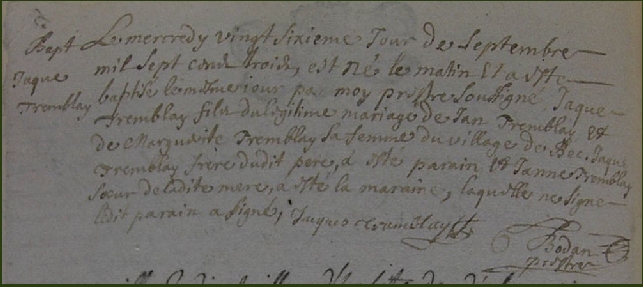 Bapt Le mercredy vingt sixieme Jour de Septembre
Jaque mil sept cent trois, est né le matin Et a este
Tremblay baptisé le même jour par moy prestre Soussigné Jaque
Tremblay fils du legitime mariage de Jan Tremblay et
de Marguerite Tremblay Sa femme du village de Bec. Jaque
Tremblay frere dudit pere, a esté parain et Janne Tremblay
sœur de ladite mere, a esté la maraine, laquelle ne signe
ledit parain a signé, Jaques tremblay
Bodan
prestre